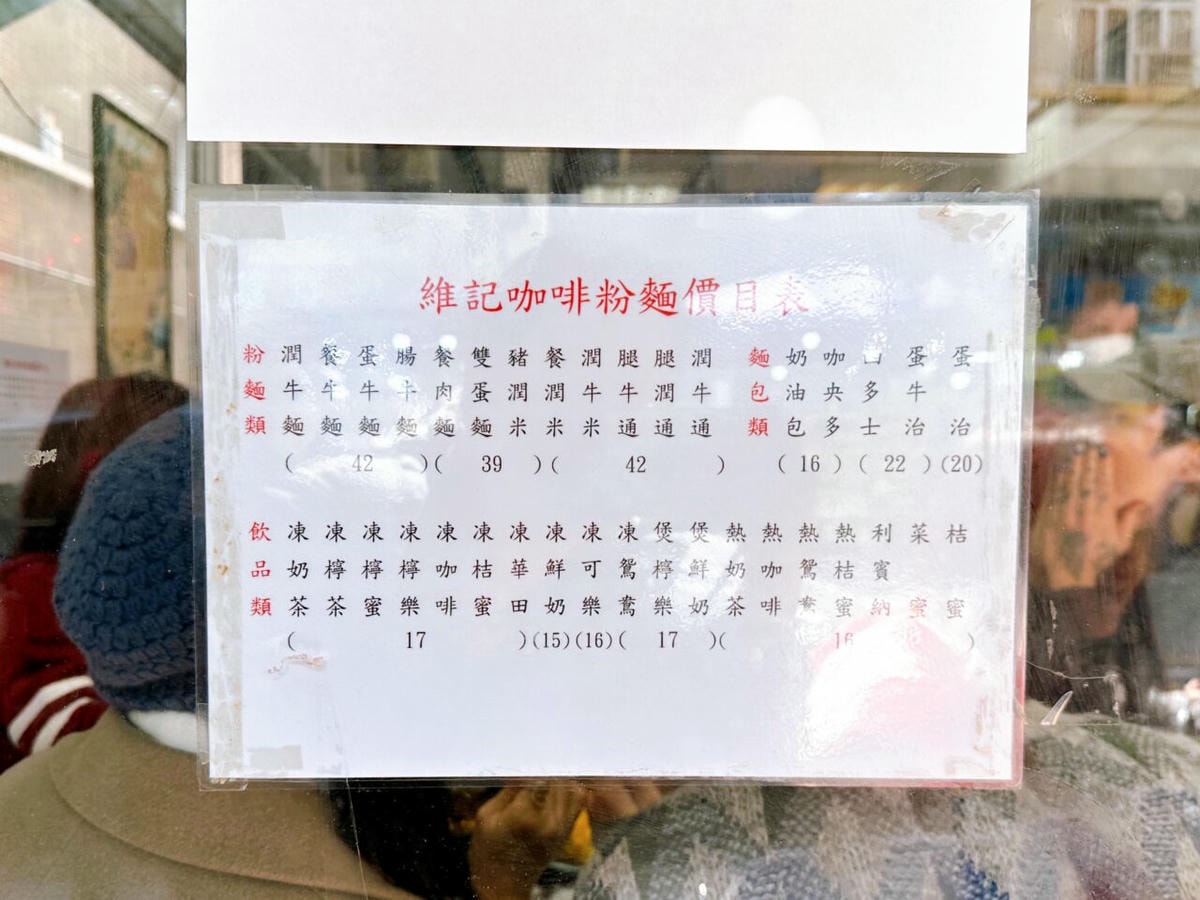 維記咖啡粉麵價目表
粉麵類
潤牛麵
餐牛麵
蛋牛麵
腸牛麵
(42)
餐肉麵
雙蛋麵
豬潤米
(39)
餐潤米
潤牛米
腿牛通
腿潤通
潤牛通
(42)
麵包類
奶油包
咖央多
(16)
西多士
蛋牛治
(22)
蛋治
(20)
飲品類
凍奶茶
凍檸茶
凍檸蜜
凍檸樂
凍咖啡
凍桔蜜
凍華田
(17)
凍鮮奶
(15)
凍可樂
(16)
凍鴛鴦
煲檸樂
煲鮮奶
(17)
熱奶茶
熱咖啡
熱鴛鴦
熱桔蜜
利賓納
菜蜜
桔蜜
(16)